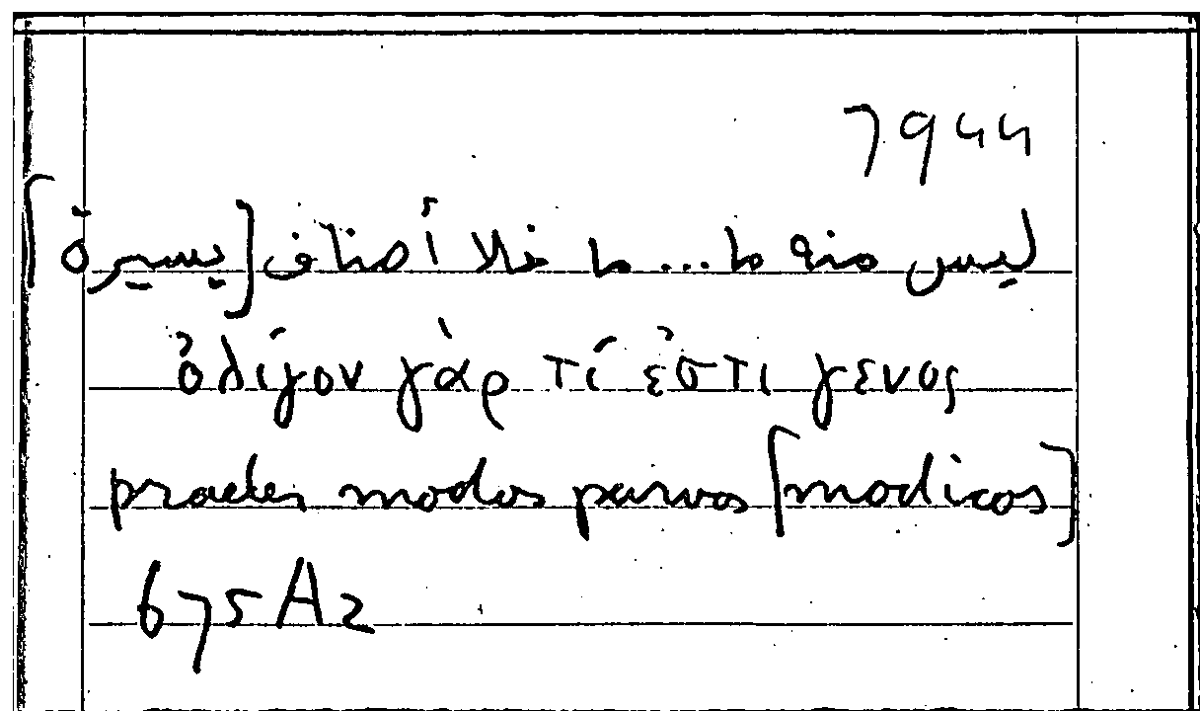 7944
ليس منه ما... ما خلا أصناف [يسيرة]
ὀλίγον γάρ τί ἐστι γενος
praeter modos parvos [modicos]
675A2